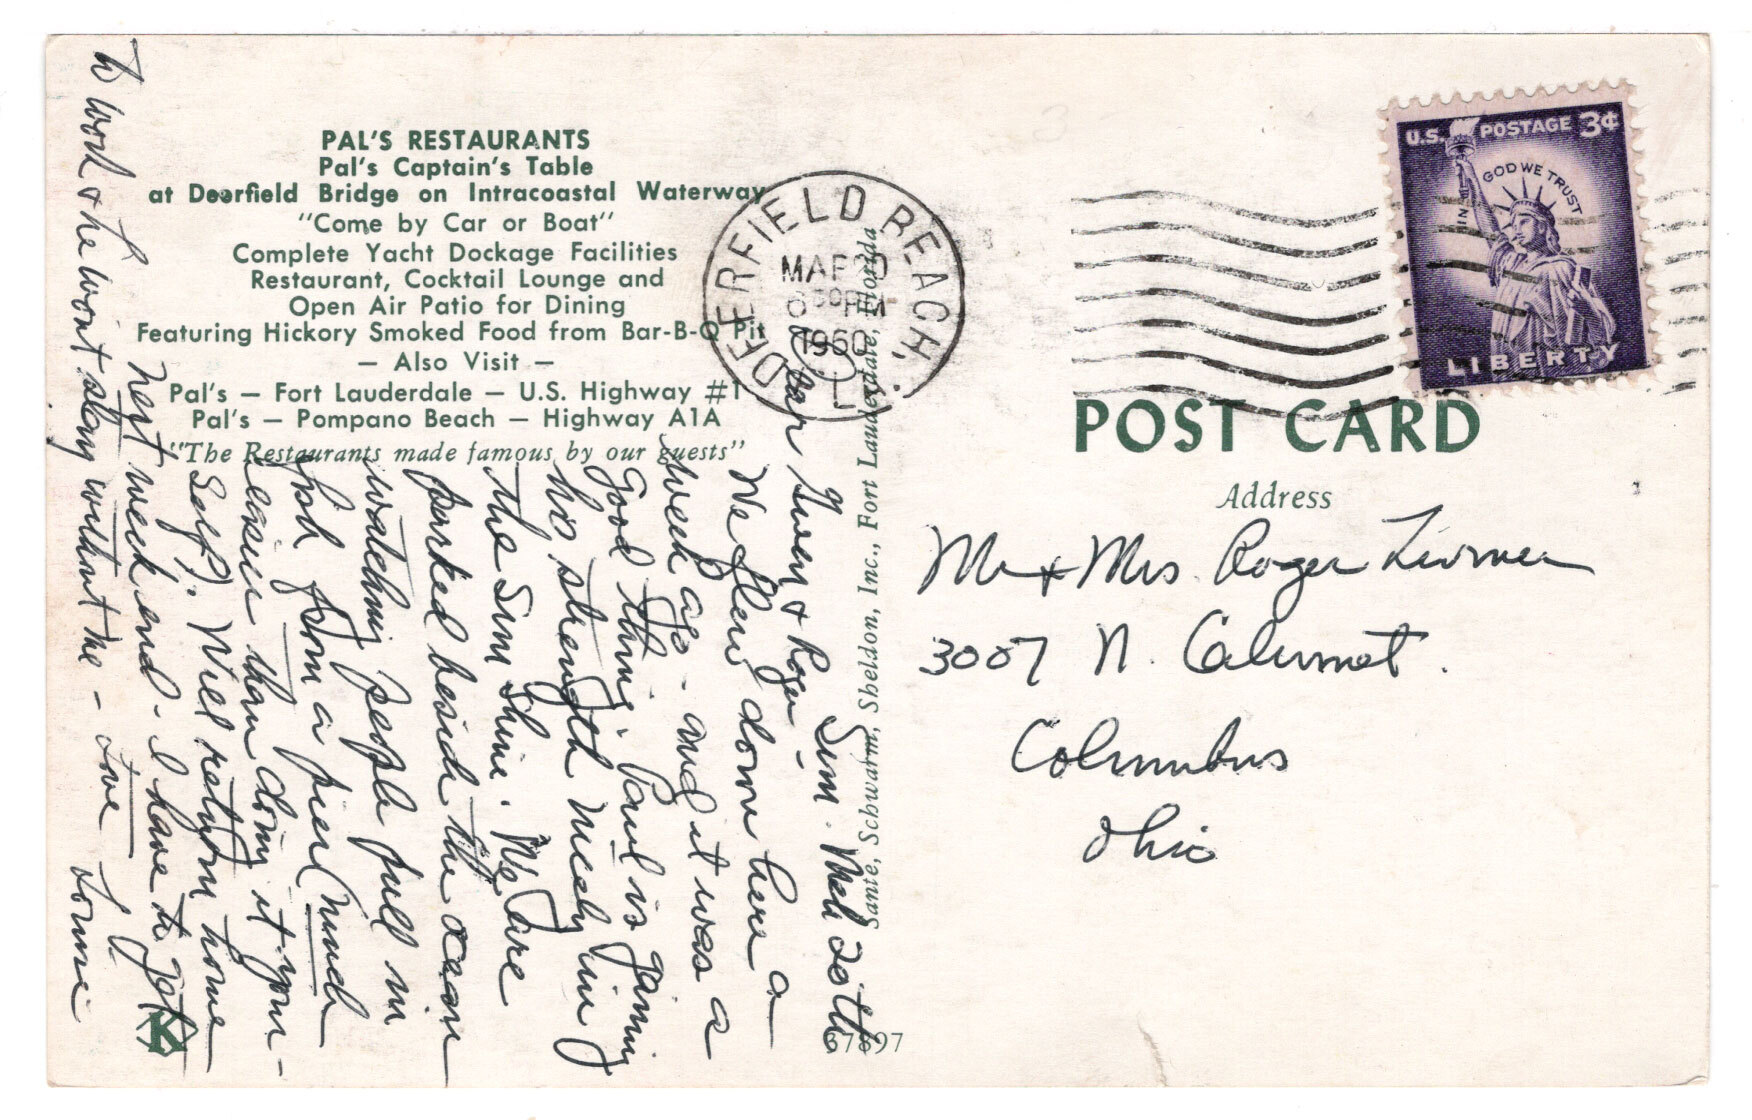 PAL'S RESTAURANTS
Pal's Captain's Table
at Deerfield Bridge on Intracoastal Waterway
"Come by Car or Boat"
Complete Yacht Dockage Facilities
Restaurant, Cocktail Lounge and
Open Air Patio for Dining
Featuring Hickory Smoked Food from Bar-B-Q Pit
— Also Visit —
Pal's — Fort Lauderdale — U.S. Highway #1
Pal's — Pompano Beach — Highway A1A
"The Restaurants made famous by our guests"
Sun. Mch 20th
Dear Gwen & Roger -
We flew down here a
week ago - and it was a
Good thing. Paul is gaining
his strength nicely in
the Sun Shine. We are
parked beside the ocean
watching people pull in
fish from a pier (much
easier than doing it your-
self). Will return home
next week end - I have to get
to work & he won't stay without me - Love
Sante, Schwarm, Sheldon, Inc., Fort Lauderdale, Florida
K
67897
DEERFIELD BEACH,
MAR 20
6 30 PM
1960
U.S. POSTAGE 3¢
IN GOD WE TRUST
LIBERTY
POST CARD
Address
Mr & Mrs. Roger
3007 N. Calumet.
Columbus
Ohio